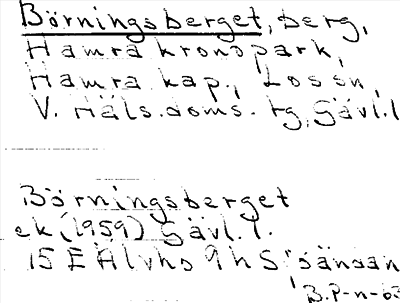 Börningsberget, berg,
Hamra kronopark,
Hamra kap., Lossn,
V. Häls. doms. tg, Gävl. l
Börningsberget
ek (1959) Gävl. l.
15 E Älvho 9 h S
B.P-n-63